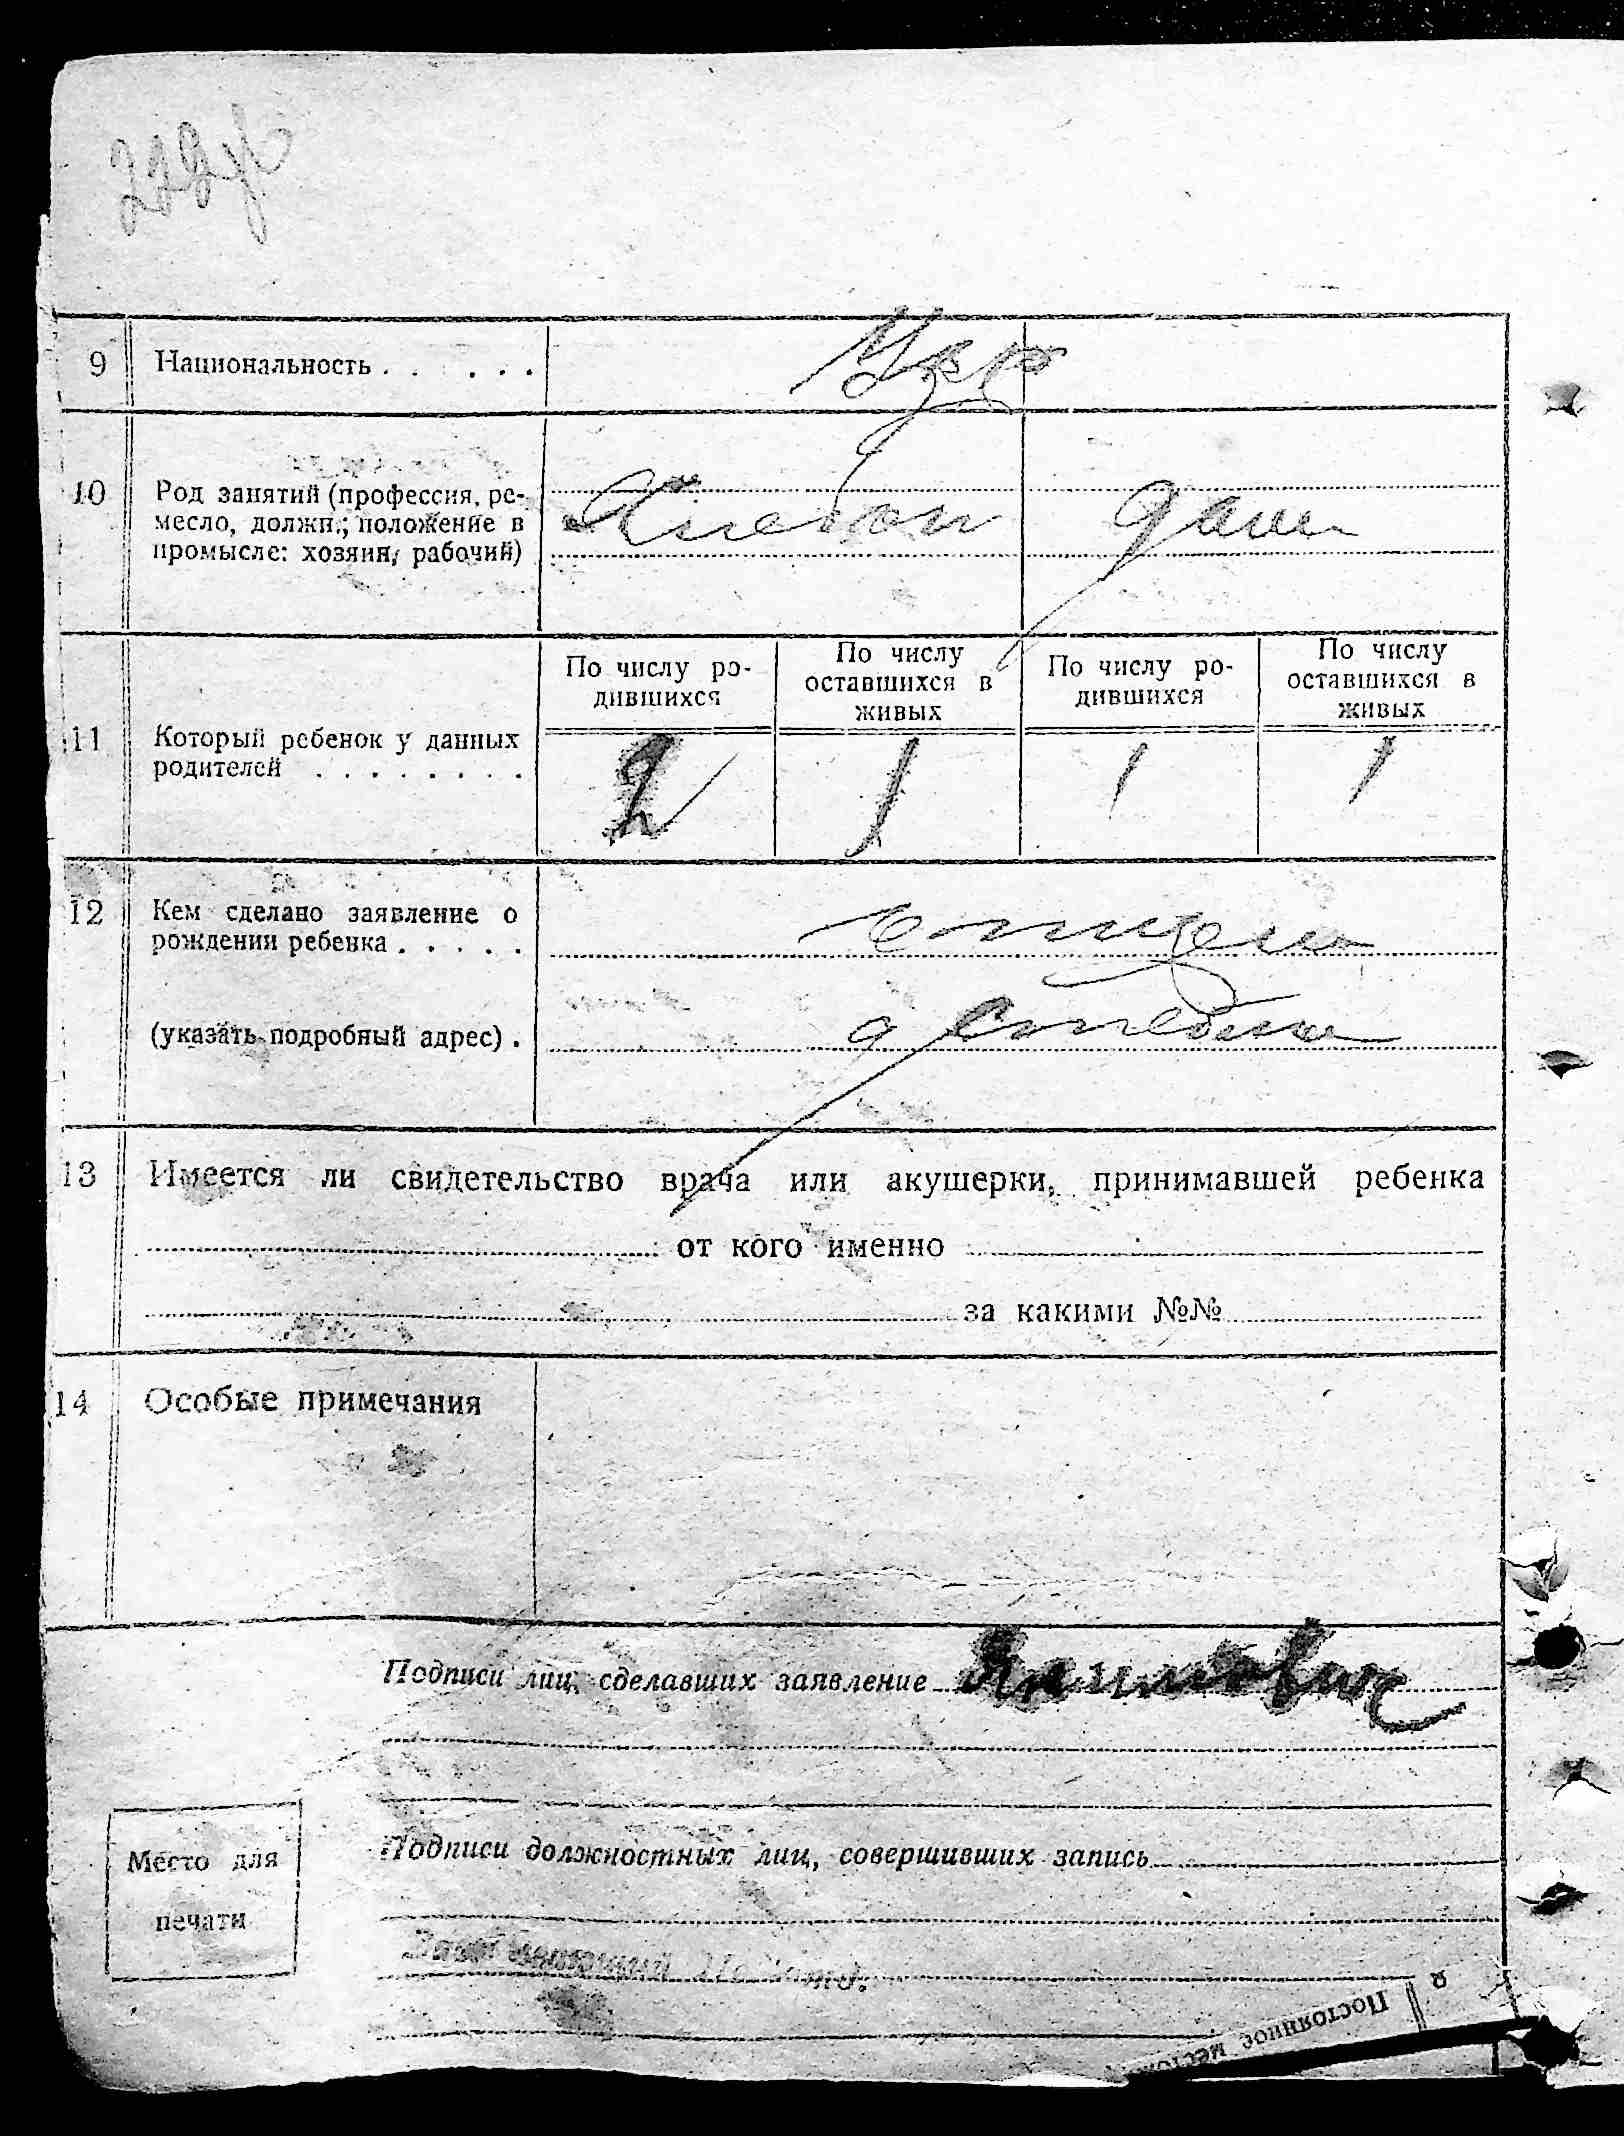 9 Национальность . . . . . . Укр
10 Род занятий (профессия, ре-
месло, должн.; положение в
промысле: хозяин, рабочий)
дом
11 Который ребенок у данных
родителей . . . . . . . .
По числу ро-
дившихся
По числу
оставшихся в
живых
По числу ро-
дившихся
По числу
оставшихся в
живых
2 1 1 1
12 Кем сделано заявление о
рождении ребенка . . . . . отцом
(указать подробный адрес) .
13 Имеется ли свидетельство врача или акушерки, принимавшей ребенка
от кого именно
за какими №№
14 Особые примечания
Подписи лиц, сделавших заявление Якимович
Подписи должностных лиц, совершивших запись
Место для
печати
Постоянное место